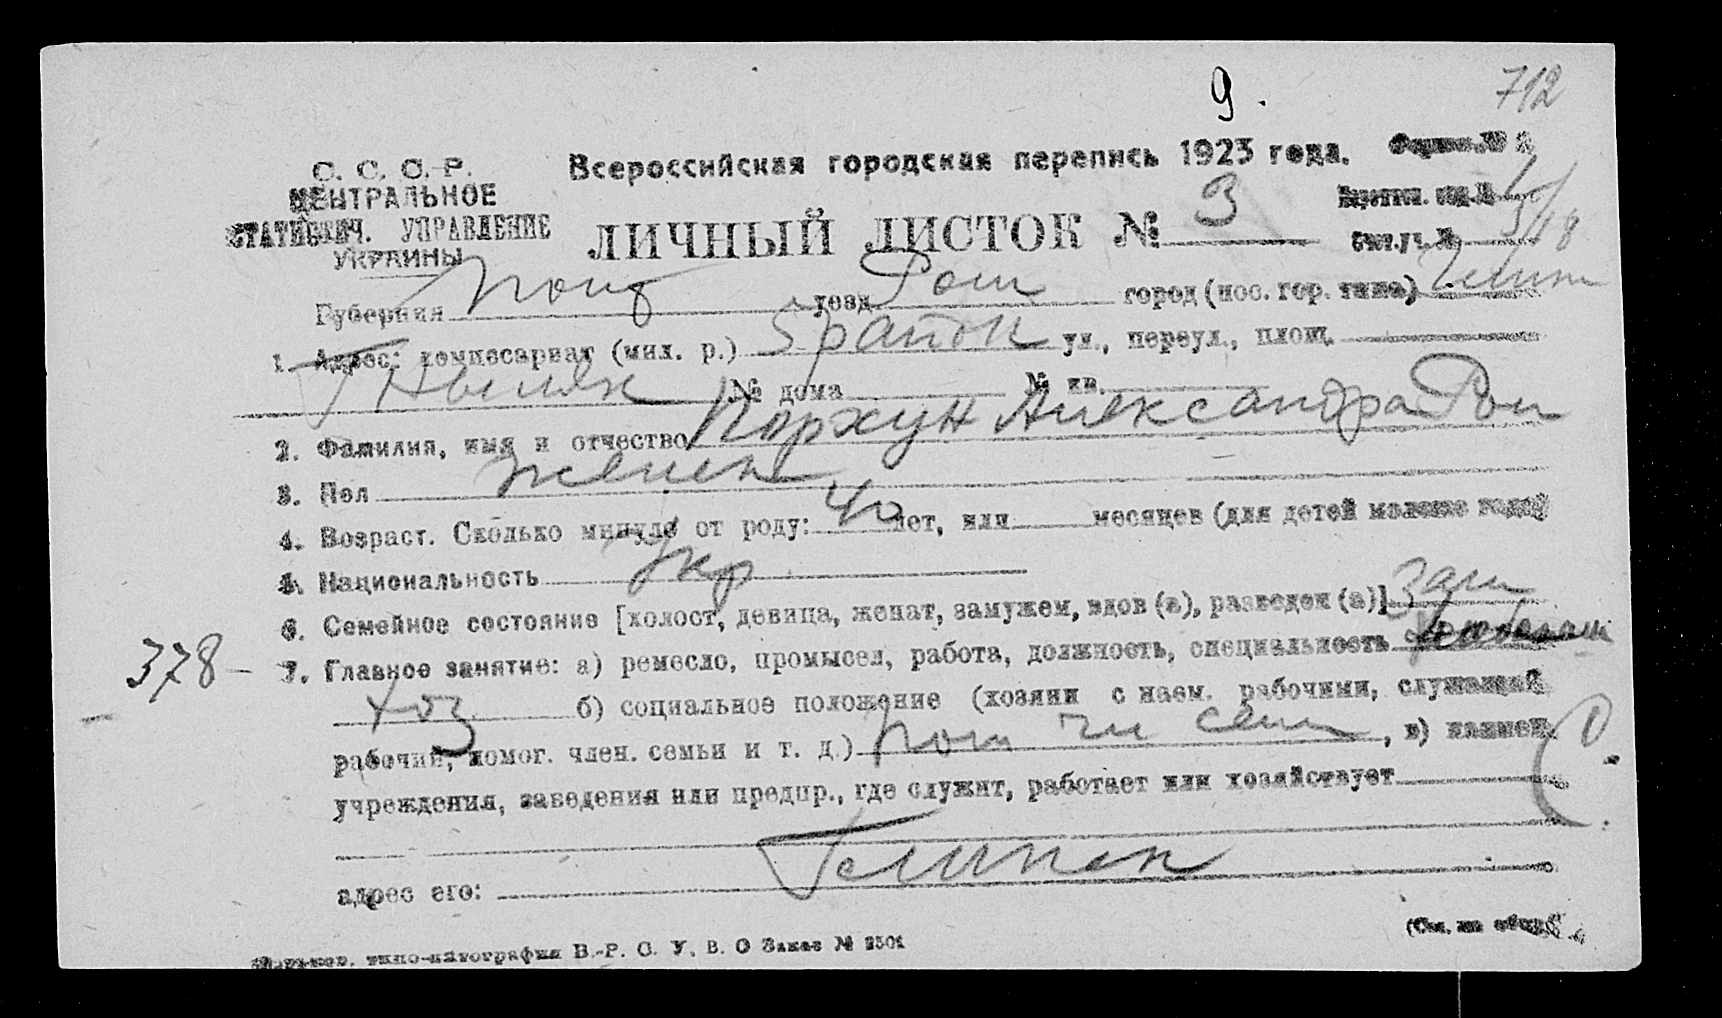 9.
712
С. С. С. Р.
ЦЕНТРАЛЬНОЕ
СТАТИСТИЧ. УПРАВЛЕНИЕ
УКРАИНЫ
Всероссийская городская перепись 1923 года.
Формы № 2
ЛИЧНЫЙ ЛИСТОК № 3
Переписн. отд. №
Счет. уч. № 18
Губерния уезд Ром город (пос. гор. типа)
1. Адрес: комиссариат (мил. р.) 5 район ул., переул., площ.
№ дома № кв.
2. Фамилия, имя и отчество Порхун Александра Ром
3. Пол женск
4. Возраст. Сколько минуло от роду: 40 лет, или месяцев (для детей моложе года)
5. Национальность Укр
6. Семейное состояние [холост, девица, женат, замужем, вдов (а), разведен (а)] Зам
378 - 7. Главное занятие: а) ремесло, промысел, работа, должность, специальность
хоз б) социальное положение (хозяин с наем. рабочими, служащий,
рабочий, помог. член. семьи и т. д.) пом чл сем, в) наимен.
учреждения, заведения или предпр., где служит, работает или хозяйствует
адрес его:
Харьков. типо-литография В.-Р. С. У. В. О Заказ № 2501
(См. на обор.)